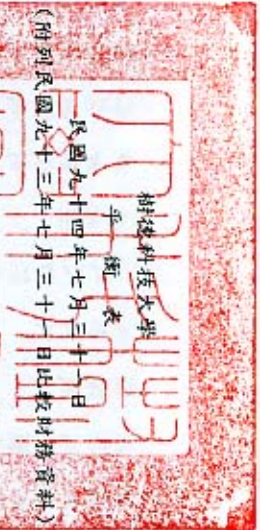 樹德科技大學
平衡表
民國九十四年七月三十一日
(附列民國九十三年七月三十一日比較財務資料)